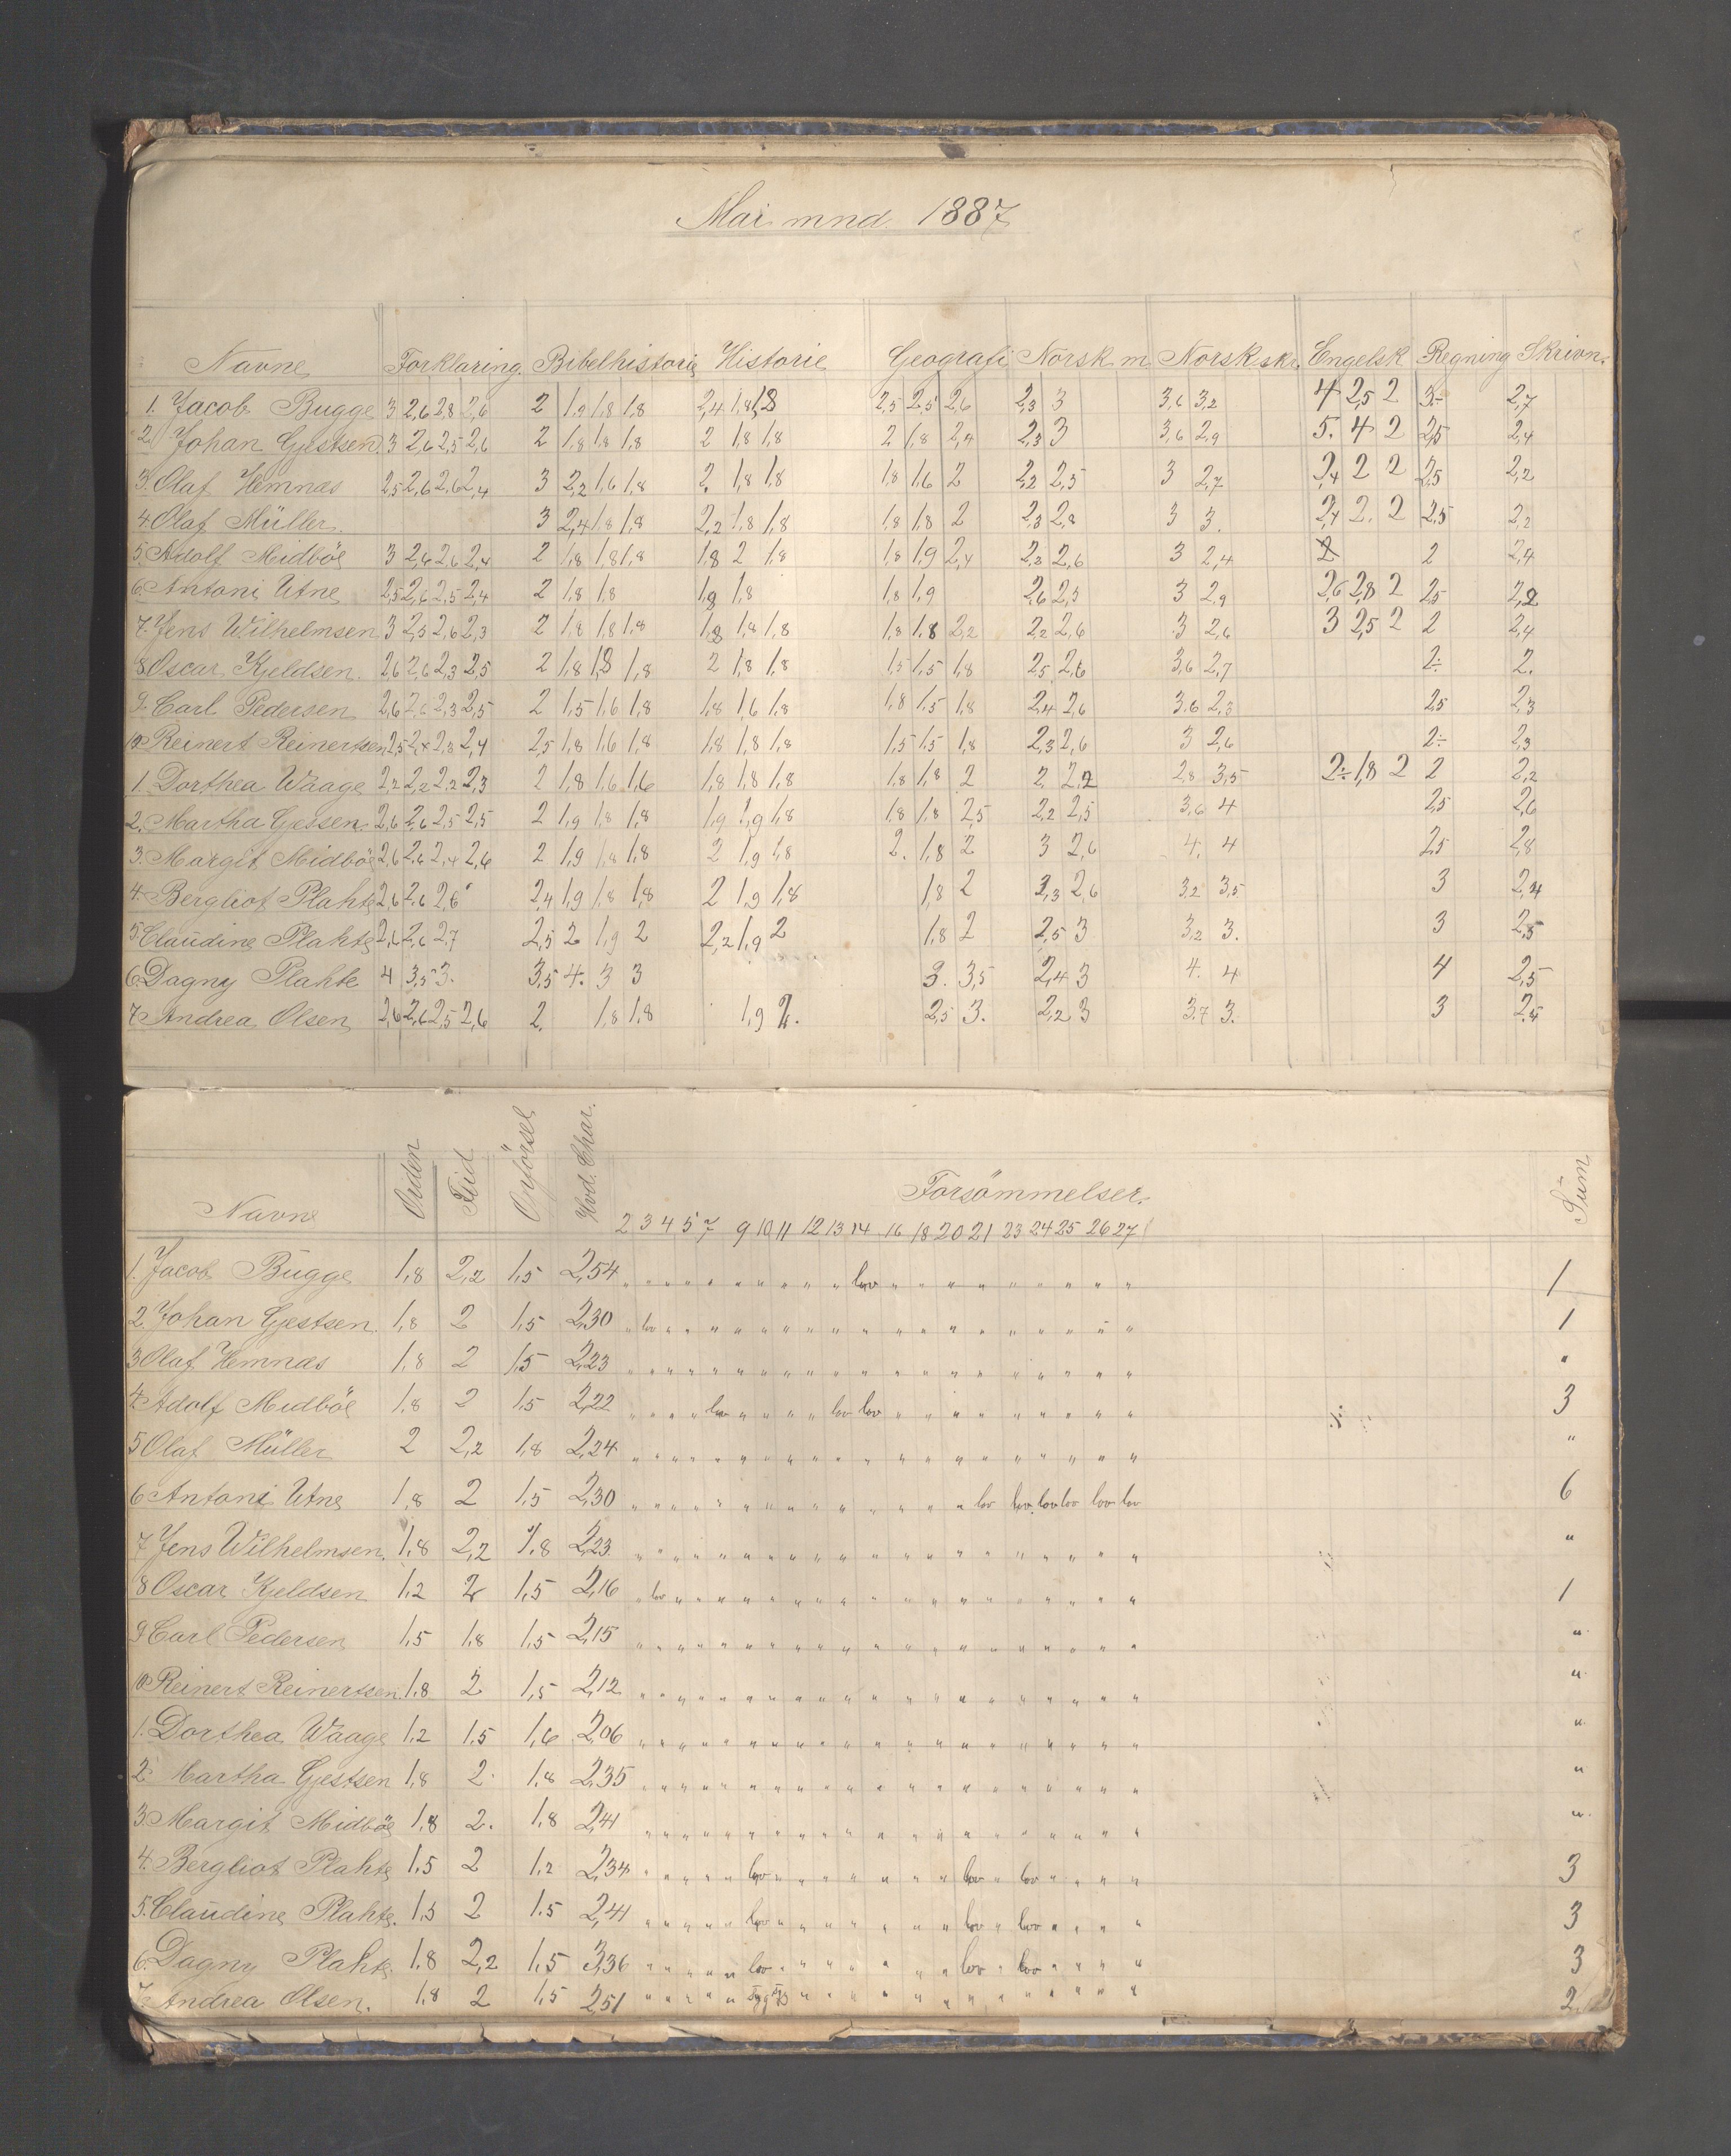 Mai mnd. 1887
Navne Forklaring. Bibelhistorie Historie Geografi Norsk m. Norsk skr. Engelsk Regning Skrivn.
1. Jacob Bugge 3 2,6 2,8 2,6 2 1,9 1,8 1,8 2,4 1,8 1,8 2,5 2,5 2,6 2,3 3 3,6 3,2 4 2,5 2 3÷ 2,7
2. Johan Gjestsen 3 2,6 2,5 2,6 2 1,8 1,8 1,8 2 1,8 1,8 2 1,8 2,4 2,3 3 3,6 2,9 5. 4 2 2,5 2,4
3. Olaf Hemnæs 2,5 2,6 2,6 2,4 3 2,2 1,6 1,8 2. 1,8 1,8 1,8 1,6 2 2,2 2,5 3 2,7 2,4 2 2 2,5 2,2
4. Olaf Müller. 3 2,4 1,8 1,8 2,2 1,8 1,8 1,8 1,8 2 2,3 2,8 3 3. 2,4 2. 2 2,5 2,2
5. Adolf Midböe 3 2,6 2,6 2,4 2 1,8 1,8 1,8 1,8 2 1,8 1,8 1,9 2,4 2,2 2,6 3 2,4 2 2 2,4
6. Antoni Utne 2,5 2,6 2,5 2,4 2 1,8 1,8 1,8 1,8 1,8 1,9 2,6 2,5 3 2,9 2,6 2,8 2 2,5 2,2
7. Jens Wilhelmsen 3 2,5 2,6 2,3 2 1,8 1,8 1,8 1,8 1,8 1,8 1,8 1,8 2,2 2,2 2,6 3 2,6 3 2,5 2 2 2,4
8. Oscar Kjeldsen. 2,6 2,6 2,3 2,5 2 1,8 1,8 1,8 2 1,8 1,8 1,5 1,5 1,8 2,5 2,6 3,6 2,7 2÷ 2.
9. Carl Pedersen 2,6 2,6 2,3 2,5 2 1,5 1,6 1,8 1,8 1,6 1,8 1,8 1,5 1,8 2,4 2,6 3,6 2,3 2,5 2,3
10. Reinert Reinertsen 2,5 2,4 2,3 2,4 2,5 1,8 1,6 1,8 1,8 1,8 1,8 1,5 1,5 1,8 2,3 2,6 3 2,6 2÷ 2,3
1. Dorthea Waage 2,2 2,2 2,2 2,3 2 1,8 1,6 1,6 1,8 1,8 1,8 1,8 1,8 2 2. 2,2 2,8 3,5 2÷ 1,8 2 2 2,2
2. Martha Gjessen 2,6 2,6 2,5 2,5 2 1,9 1,8 1,8 1,9 1,9 1,8 1,8 1,8 2,5 2,2 2,5 3,6 4 2,5 2,6
3. Margit Midböe 2,6 2,6 2,4 2,6 2 1,9 1,8 1,8 2 1,9 1,8 2. 1,8 2 3 2,6 4. 4 2,5 2,8
4. Bergliot Plahte 2,6 2,6 2,6 2,4 1,9 1,8 1,8 2 1,9 1,8 1,8 2 2,3 2,6 3,2 3,5 3 2,4
5. Claudine Plahte 2,6 2,6 2,7 2,5 2 1,9 2 2,2 1,9 2 1,8 2 2,5 3 3,2 3. 3 2,5
6. Dagny Plahte 4 3,5 3. 3,5 4. 3 3 3. 3,5 2,4 3 4. 4 4 2,5
7. Andrea Olsen 2,6 2,6 2,5 2,6 2. 1,8 1,8 1,9 2. 2,5 3. 2,2 3 3,7 3. 3 2,5
Navne Orden Flid Opförsel Hvd. Char. Forsömmelser. Sum
2 3 4 5 7 9 10 11 12 13 14 16 18 20 21 23 24 25 26 27
1. Jacob Bugge 1,8 2,2 1,5 2,54 " " " " " " " " " " lov " " " " " " " " " 1
2. Johan Gjestsen. 1,8 2 1,5 2,30 " lov " " " " " " " " " " " " " " " " " " 1
3 Olaf Hemnæs 1,8 2 1,5 2,23 " " " " " " " " " " " " " " " " " " " " "
4. Adolf Midböe 1,8 2 1,5 2,22 " " " " lov " " " " lov lov " " " " " " " " " 3
5 Olaf Müller 2 2,2 1,8 2,24 " " " " " " " " " " " " " " " " " " " " "
6 Antoni Utne 1,8 2 1,5 2,30 " " " " " " " " " " " " " " lov lov lov lov lov lov 6
7 Jens Wilhelmsen. 1,8 2,2 1,8 2,23 " " " " " " " " " " " " " " " " " " " " "
8 Oscar Kjeldsen 1,2 2 1,5 2,16 " lov " " " " " " " " " " " " " " " " " " 1
9 Carl Pedersen 1,5 1,8 1,5 2,15 " " " " " " " " " " " " " " " " " " " " "
10 Reinert Reinertsen. 1,8 2 1,5 2,12 " " " " " " " " " " " " " " " " " " " " "
1. Dorthea Waage 1,2 1,5 1,6 2,06 " " " " " " " " " " " " " " " " " " " " "
2. Martha Gjestsen 1,8 2. 1,8 2,35 " " " " " " " " " " " " " " " " " " " " "
3. Margit Midböe 1,8 2. 1,8 2,41 " " " " " " " " " " " " " " " " " " " " "
4. Bergliot Plahte 1,5 2 1,2 2,34 " " " " " lov " " " " " " " " lov " lov " " " " 3
5. Claudine Plahte. 1,5 2 1,5 2,41 " " " " " lov " " " " " " " " lov " lov " " " " 3
6. Dagny Plahte. 1,8 2,2 1,5 3,36 " " " " " lov " " " " " " " " lov " lov " " " " 3
7. Andrea Olsen. 1,8 2 1,5 2,51 " " " " " " " " " " " " " " " " " " 2.